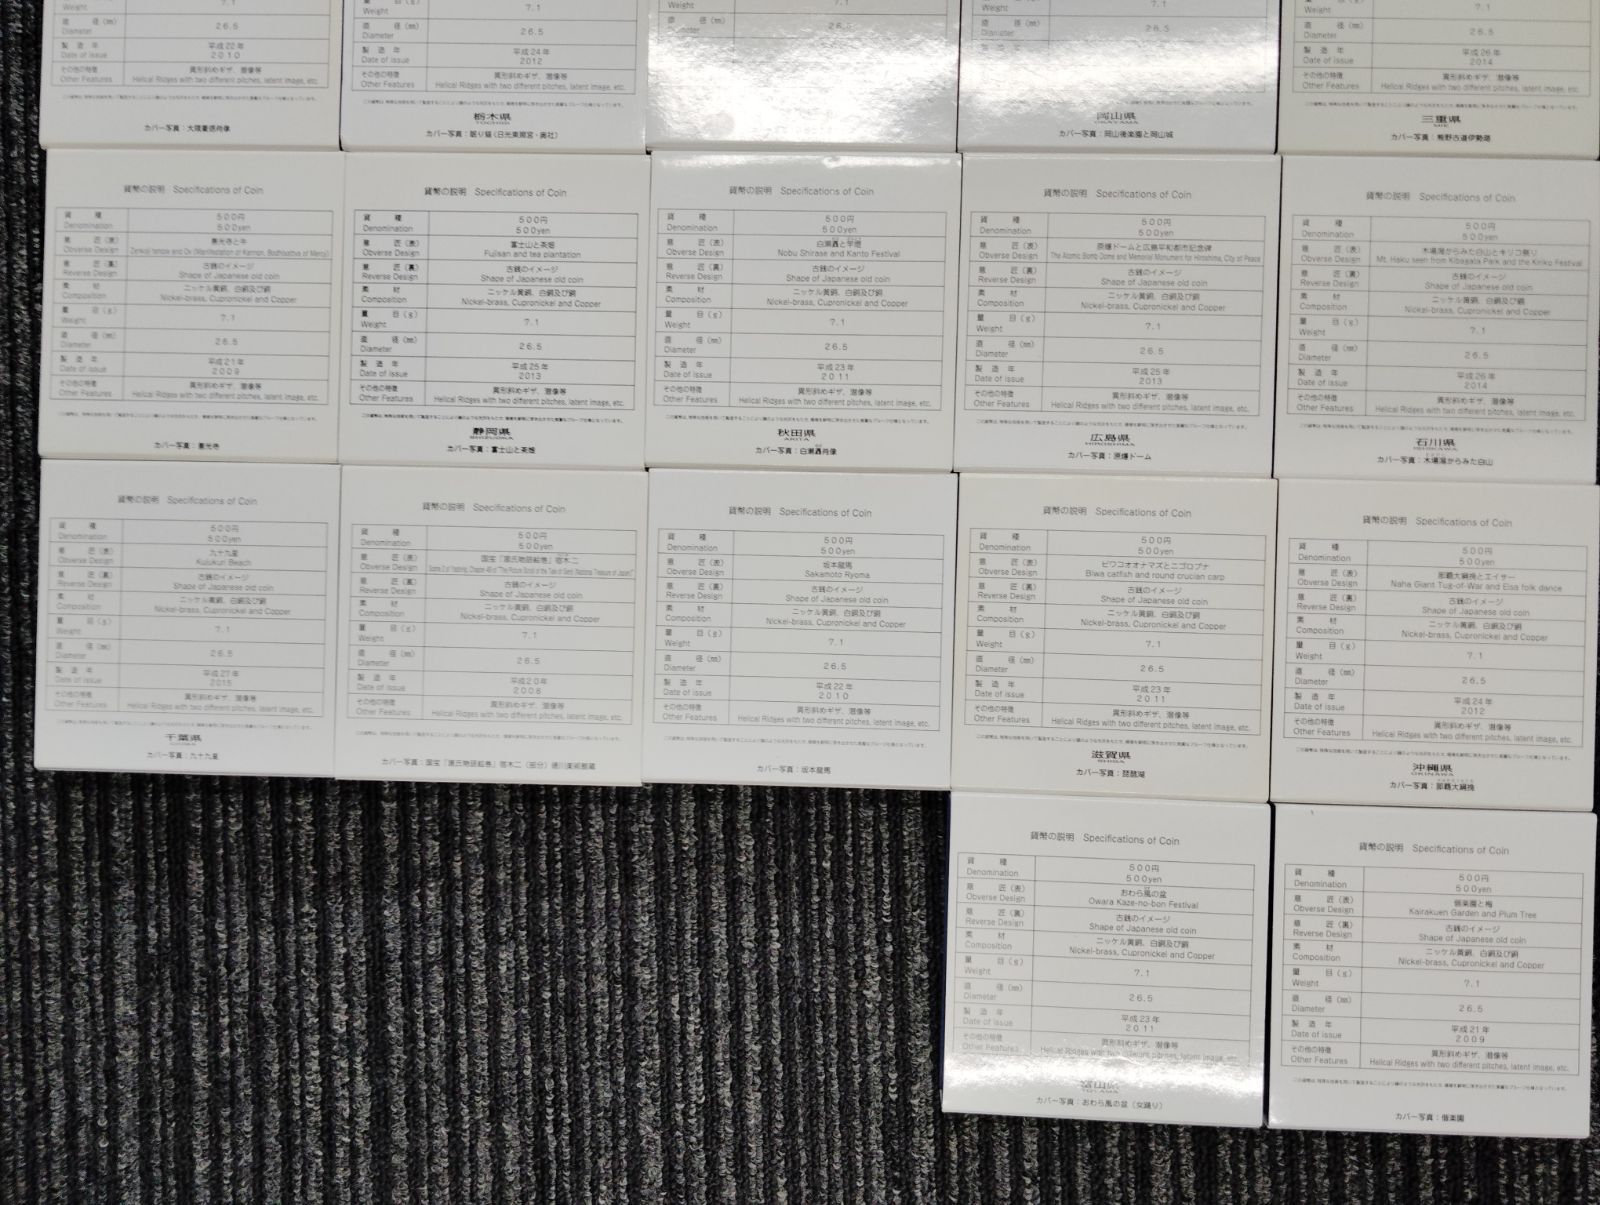 Weight 7.1
直 径 (㎜)
Diameter 26.5
製 造 年 平成22年
Date of issue 2010
その他の特徴 異形斜めギザ、潜像等
Other Features Helical Ridges with two different pitches, latent image, etc.
カバー写真：大隈重信肖像
Weight 7.1
直 径 (㎜)
Diameter 26.5
製 造 年 平成24年
Date of issue 2012
その他の特徴 異形斜めギザ、潜像等
Other Features Helical Ridges with two different pitches, latent image, etc.
栃木県
TOCHIGI
カバー写真：眠り猫（日光東照宮・奥社）
7.1
直 径 (㎜)
26.5
Weight 7.1
直 径 (㎜)
Diameter 26.5
岡山県
OKAYAMA
カバー写真：岡山後楽園と岡山城
Weight 7.1
直 径 (㎜)
Diameter 26.5
製 造 年 平成26年
Date of issue 2014
その他の特徴 異形斜めギザ、潜像等
Other Features Helical Ridges with two different pitches, latent image, etc.
三重県
MIE
カバー写真：熊野古道伊勢路
貨幣の説明 Specifications of Coin
貨 種 500円
Denomination 500yen
意 匠（表） 善光寺と牛
Obverse Design
意 匠（裏） 古銭のイメージ
Reverse Design Shape of Japanese old coin
素 材 ニッケル黄銅、白銅及び銅
Composition Nickel-brass, Cupronickel and Copper
量 目（g）
Weight 7.1
直 径 (㎜)
Diameter 26.5
製 造 年 平成21年
Date of issue 2009
その他の特徴 異形斜めギザ、潜像等
Other Features Helical Ridges with two different pitches, latent image, etc.
カバー写真：善光寺
貨幣の説明 Specifications of Coin
貨 種 500円
Denomination 500yen
意 匠（表） 富士山と茶畑
Obverse Design Fujisan and tea plantation
意 匠（裏） 古銭のイメージ
Reverse Design Shape of Japanese old coin
素 材 ニッケル黄銅、白銅及び銅
Composition Nickel-brass, Cupronickel and Copper
量 目（g）
Weight 7.1
直 径 (㎜)
Diameter 26.5
製 造 年 平成25年
Date of issue 2013
その他の特徴 異形斜めギザ、潜像等
Other Features Helical Ridges with two different pitches, latent image, etc.
静岡県
SHIZUOKA
カバー写真：富士山と茶畑
貨幣の説明 Specifications of Coin
貨 種 500円
Denomination 500yen
意 匠（表） 白瀬矗と竿燈
Obverse Design Nobu Shirase and Kanto Festival
意 匠（裏） 古銭のイメージ
Reverse Design Shape of Japanese old coin
素 材 ニッケル黄銅、白銅及び銅
Composition Nickel-brass, Cupronickel and Copper
量 目（g）
Weight 7.1
直 径 (㎜)
Diameter 26.5
製 造 年 平成23年
Date of issue 2011
その他の特徴 異形斜めギザ、潜像等
Other Features Helical Ridges with two different pitches, latent image, etc.
秋田県
AKITA
カバー写真：白瀬矗肖像
貨幣の説明 Specifications of Coin
貨 種 500円
Denomination 500yen
意 匠（表） 原爆ドームと広島平和都市記念碑
Obverse Design The Atomic Bomb Dome and Memorial Monument for Hiroshima, City of Peace
意 匠（裏） 古銭のイメージ
Reverse Design Shape of Japanese old coin
素 材 ニッケル黄銅、白銅及び銅
Composition Nickel-brass, Cupronickel and Copper
量 目（g）
Weight 7.1
直 径 (㎜)
Diameter 26.5
製 造 年 平成25年
Date of issue 2013
その他の特徴 異形斜めギザ、潜像等
Other Features Helical Ridges with two different pitches, latent image, etc.
広島県
HIROSHIMA
カバー写真：原爆ドーム
貨幣の説明 Specifications of Coin
貨 種 500円
Denomination 500yen
意 匠（表） 木場潟からみた白山とキリコ祭り
Obverse Design Mt. Haku seen from Kibagata Park and the Kiriko Festival
意 匠（裏） 古銭のイメージ
Reverse Design Shape of Japanese old coin
素 材 ニッケル黄銅、白銅及び銅
Composition Nickel-brass, Cupronickel and Copper
量 目（g）
Weight 7.1
直 径 (㎜)
Diameter 26.5
製 造 年 平成26年
Date of issue 2014
その他の特徴 異形斜めギザ、潜像等
Other Features Helical Ridges with two different pitches, latent image, etc.
石川県
ISHIKAWA
カバー写真：木場潟からみた白山
貨幣の説明 Specifications of Coin
貨 種 500円
Denomination 500yen
意 匠（表） 九十九里
Obverse Design Kujukuri Beach
意 匠（裏） 古銭のイメージ
Reverse Design Shape of Japanese old coin
素 材 ニッケル黄銅、白銅及び銅
Composition Nickel-brass, Cupronickel and Copper
量 目（g）
Weight 7.1
直 径 (㎜)
Diameter 26.5
製 造 年 平成27年
Date of issue 2015
その他の特徴 異形斜めギザ、潜像等
Other Features Helical Ridges with two different pitches, latent image, etc.
千葉県
カバー写真：九十九里
貨幣の説明 Specifications of Coin
貨 種 500円
Denomination 500yen
意 匠（表） 国宝「源氏物語絵巻」宿木二
Obverse Design
意 匠（裏） 古銭のイメージ
Reverse Design Shape of Japanese old coin
素 材 ニッケル黄銅、白銅及び銅
Composition Nickel-brass, Cupronickel and Copper
量 目（g）
Weight 7.1
直 径 (㎜)
Diameter 26.5
製 造 年 平成20年
Date of issue 2008
その他の特徴 異形斜めギザ、潜像等
Other Features Helical Ridges with two different pitches, latent image, etc.
カバー写真：国宝「源氏物語絵巻」宿木二（部分）徳川美術館蔵
貨幣の説明 Specifications of Coin
貨 種 500円
Denomination 500yen
意 匠（表） 坂本龍馬
Obverse Design Sakamoto Ryoma
意 匠（裏） 古銭のイメージ
Reverse Design Shape of Japanese old coin
素 材 ニッケル黄銅、白銅及び銅
Composition Nickel-brass, Cupronickel and Copper
量 目（g）
Weight 7.1
直 径 (㎜)
Diameter 26.5
製 造 年 平成22年
Date of issue 2010
その他の特徴 異形斜めギザ、潜像等
Other Features Helical Ridges with two different pitches, latent image, etc.
カバー写真：坂本龍馬
貨幣の説明 Specifications of Coin
貨 種 500円
Denomination 500yen
意 匠（表） ビワコオオナマズとニゴロブナ
Obverse Design Biwa catfish and round crucian carp
意 匠（裏） 古銭のイメージ
Reverse Design Shape of Japanese old coin
素 材 ニッケル黄銅、白銅及び銅
Composition Nickel-brass, Cupronickel and Copper
量 目（g）
Weight 7.1
直 径 (㎜)
Diameter 26.5
製 造 年 平成23年
Date of issue 2011
その他の特徴 異形斜めギザ、潜像等
Other Features Helical Ridges with two different pitches, latent image, etc.
滋賀県
SHIGA
カバー写真：琵琶湖
貨幣の説明 Specifications of Coin
貨 種 500円
Denomination 500yen
意 匠（表） 那覇大綱挽とエイサー
Obverse Design Naha Giant Tug-of-War and Eisa folk dance
意 匠（裏） 古銭のイメージ
Reverse Design Shape of Japanese old coin
素 材 ニッケル黄銅、白銅及び銅
Composition Nickel-brass, Cupronickel and Copper
量 目（g）
Weight 7.1
直 径 (㎜)
Diameter 26.5
製 造 年 平成24年
Date of issue 2012
その他の特徴 異形斜めギザ、潜像等
Other Features Helical Ridges with two different pitches, latent image, etc.
沖縄県
OKINAWA
カバー写真：那覇大綱挽
貨幣の説明 Specifications of Coin
貨 種 500円
Denomination 500yen
意 匠（表） おわら風の盆
Obverse Design Owara Kaze-no-bon Festival
意 匠（裏） 古銭のイメージ
Reverse Design Shape of Japanese old coin
素 材 ニッケル黄銅、白銅及び銅
Composition Nickel-brass, Cupronickel and Copper
量 目（g）
Weight 7.1
直 径 (㎜)
Diameter 26.5
製 造 年 平成23年
Date of issue 2011
その他の特徴 異形斜めギザ、潜像等
Other Features Helical Ridges with two different pitches, latent image, etc.
富山県
カバー写真：おわら風の盆（女踊り）
貨幣の説明 Specifications of Coin
貨 種 500円
Denomination 500yen
意 匠（表） 偕楽園と梅
Obverse Design Kairakuen Garden and Plum Tree
意 匠（裏） 古銭のイメージ
Reverse Design Shape of Japanese old coin
素 材 ニッケル黄銅、白銅及び銅
Composition Nickel-brass, Cupronickel and Copper
量 目（g）
Weight 7.1
直 径 (㎜)
Diameter 26.5
製 造 年 平成21年
Date of issue 2009
その他の特徴 異形斜めギザ、潜像等
Other Features Helical Ridges with two different pitches, latent image, etc.
カバー写真：偕楽園